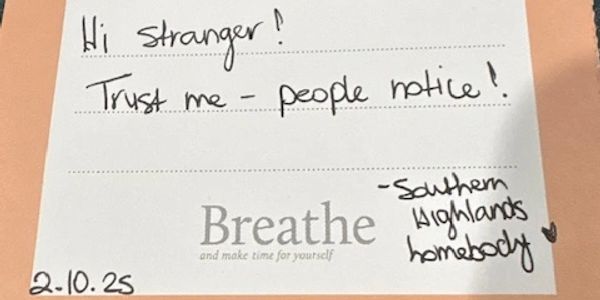 Hi stranger!
Trust me - people notice!
- Southern
Highlands
homebody
Breathe
and make time for yourself
2.10.25